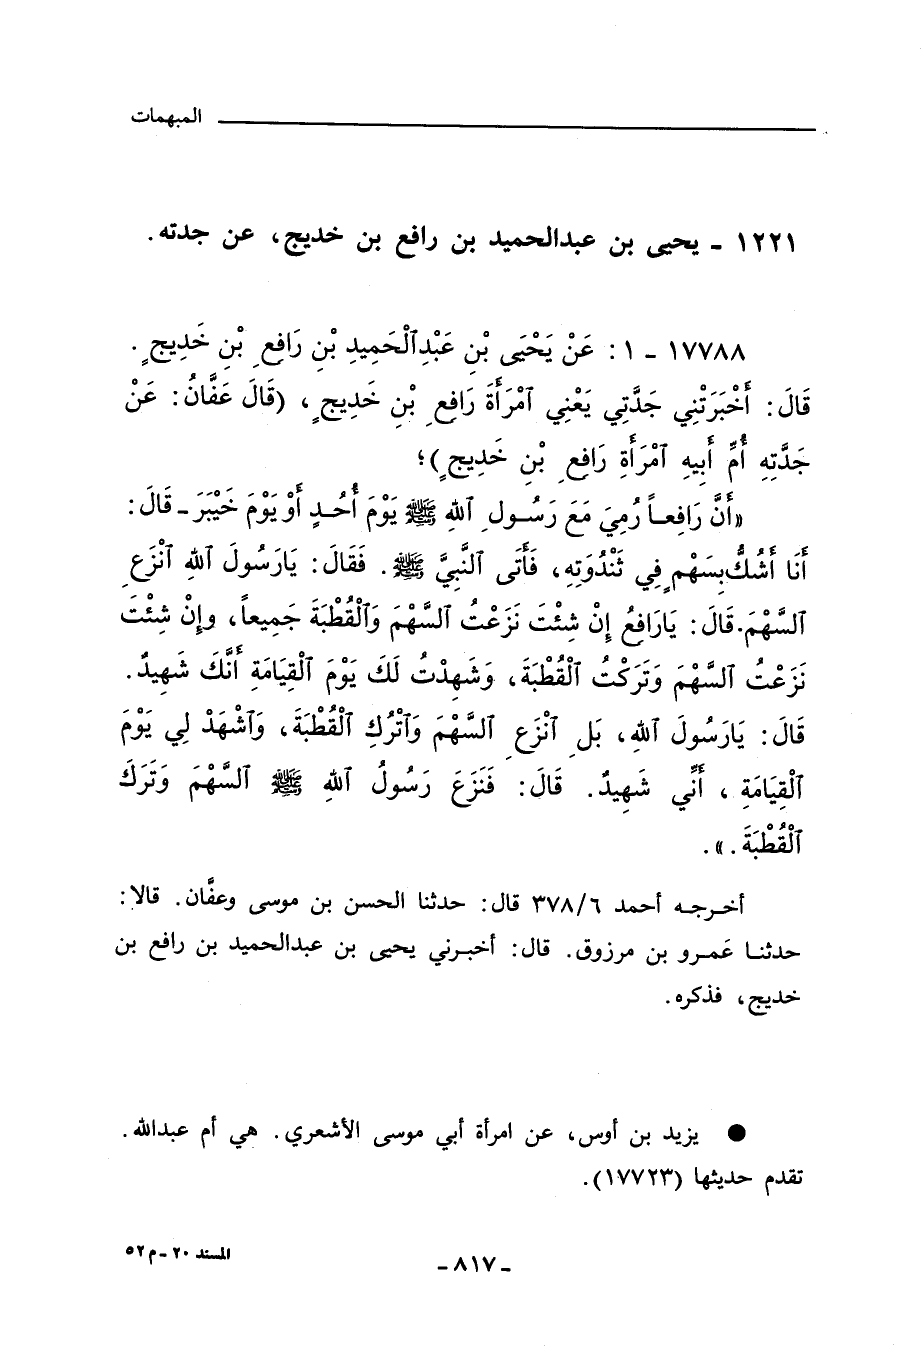 المبهمات
١٢٢١ ـ يحيى بن عبدالحميد بن رافع بن خديج، عن جدته.
١٧٧٨٨ ـ ١ : عَنْ يَحْيَى بْنِ عَبْدِٱلْحَمِيدِ بْنِ رَافِعِ بْنِ خَدِيجٍ.
قَالَ: أَخْبَرَتْنِي جَدَّتِي يَعْنِي ٱمْرَأَةَ رَافِعِ بْنِ خَدِيجٍ، (قَالَ عَفَّانُ: عَنْ
جَدَّتِهِ أُمِّ أَبِيهِ ٱمْرَأَةِ رَافِعِ بْنِ خَدِيجٍ)؛
«أَنَّ رَافِعاً رُمِيَ مَعَ رَسُولِ ٱللهِ ﷺ يَوْمَ أُحُدٍ أَوْ يَوْمَ خَيْبَرَ ـ قَالَ:
أَنَا أَشُكُّ بِسَهْمٍ فِي ثَنْدُوَتِهِ، فَأَتَى ٱلنَّبِيَّ ﷺ. فَقَالَ: يَارَسُولَ ٱللهِ ٱنْزَعِ
ٱلسَّهْمَ. قَالَ: يَارَافِعُ إِنْ شِئْتَ نَزَعْتُ ٱلسَّهْمَ وَٱلْقُطْبَةَ جَمِيعاً، وإِنْ شِئْتَ
نَزَعْتُ ٱلسَّهْمَ وَتَرَكْتُ ٱلْقُطْبَةَ، وَشَهِدْتُ لَكَ يَوْمَ ٱلْقِيَامَةِ أَنَّكَ شَهِيدٌ.
قَالَ: يَارَسُولَ ٱللهِ، بَلِ ٱنْزَعِ ٱلسَّهْمَ وَٱتْرُكِ ٱلْقُطْبَةَ، وَٱشْهَدْ لِي يَوْمَ
ٱلْقِيَامَةِ، أَنِّي شَهِيدٌ. قَالَ: فَنَزَعَ رَسُولُ ٱللهِ ﷺ ٱلسَّهْمَ وَتَرَكَ
ٱلْقُطْبَةَ.».
أخرجه أحمد ٣٧٨/٦ قال: حدثنا الحسن بن موسى وعفَّان. قالا:
حدثنا عَمرو بن مرزوق. قال: أخبرني يحيى بن عبدالحميد بن رافع بن
خديج، فذكره.
● يزيد بن أوس، عن امرأة أبي موسى الأشعري. هي أم عبدالله.
تقدم حديثها (١٧٧٢٣).
ـ ٨١٧ ـ
المسند ٢٠ ـ م٥٢